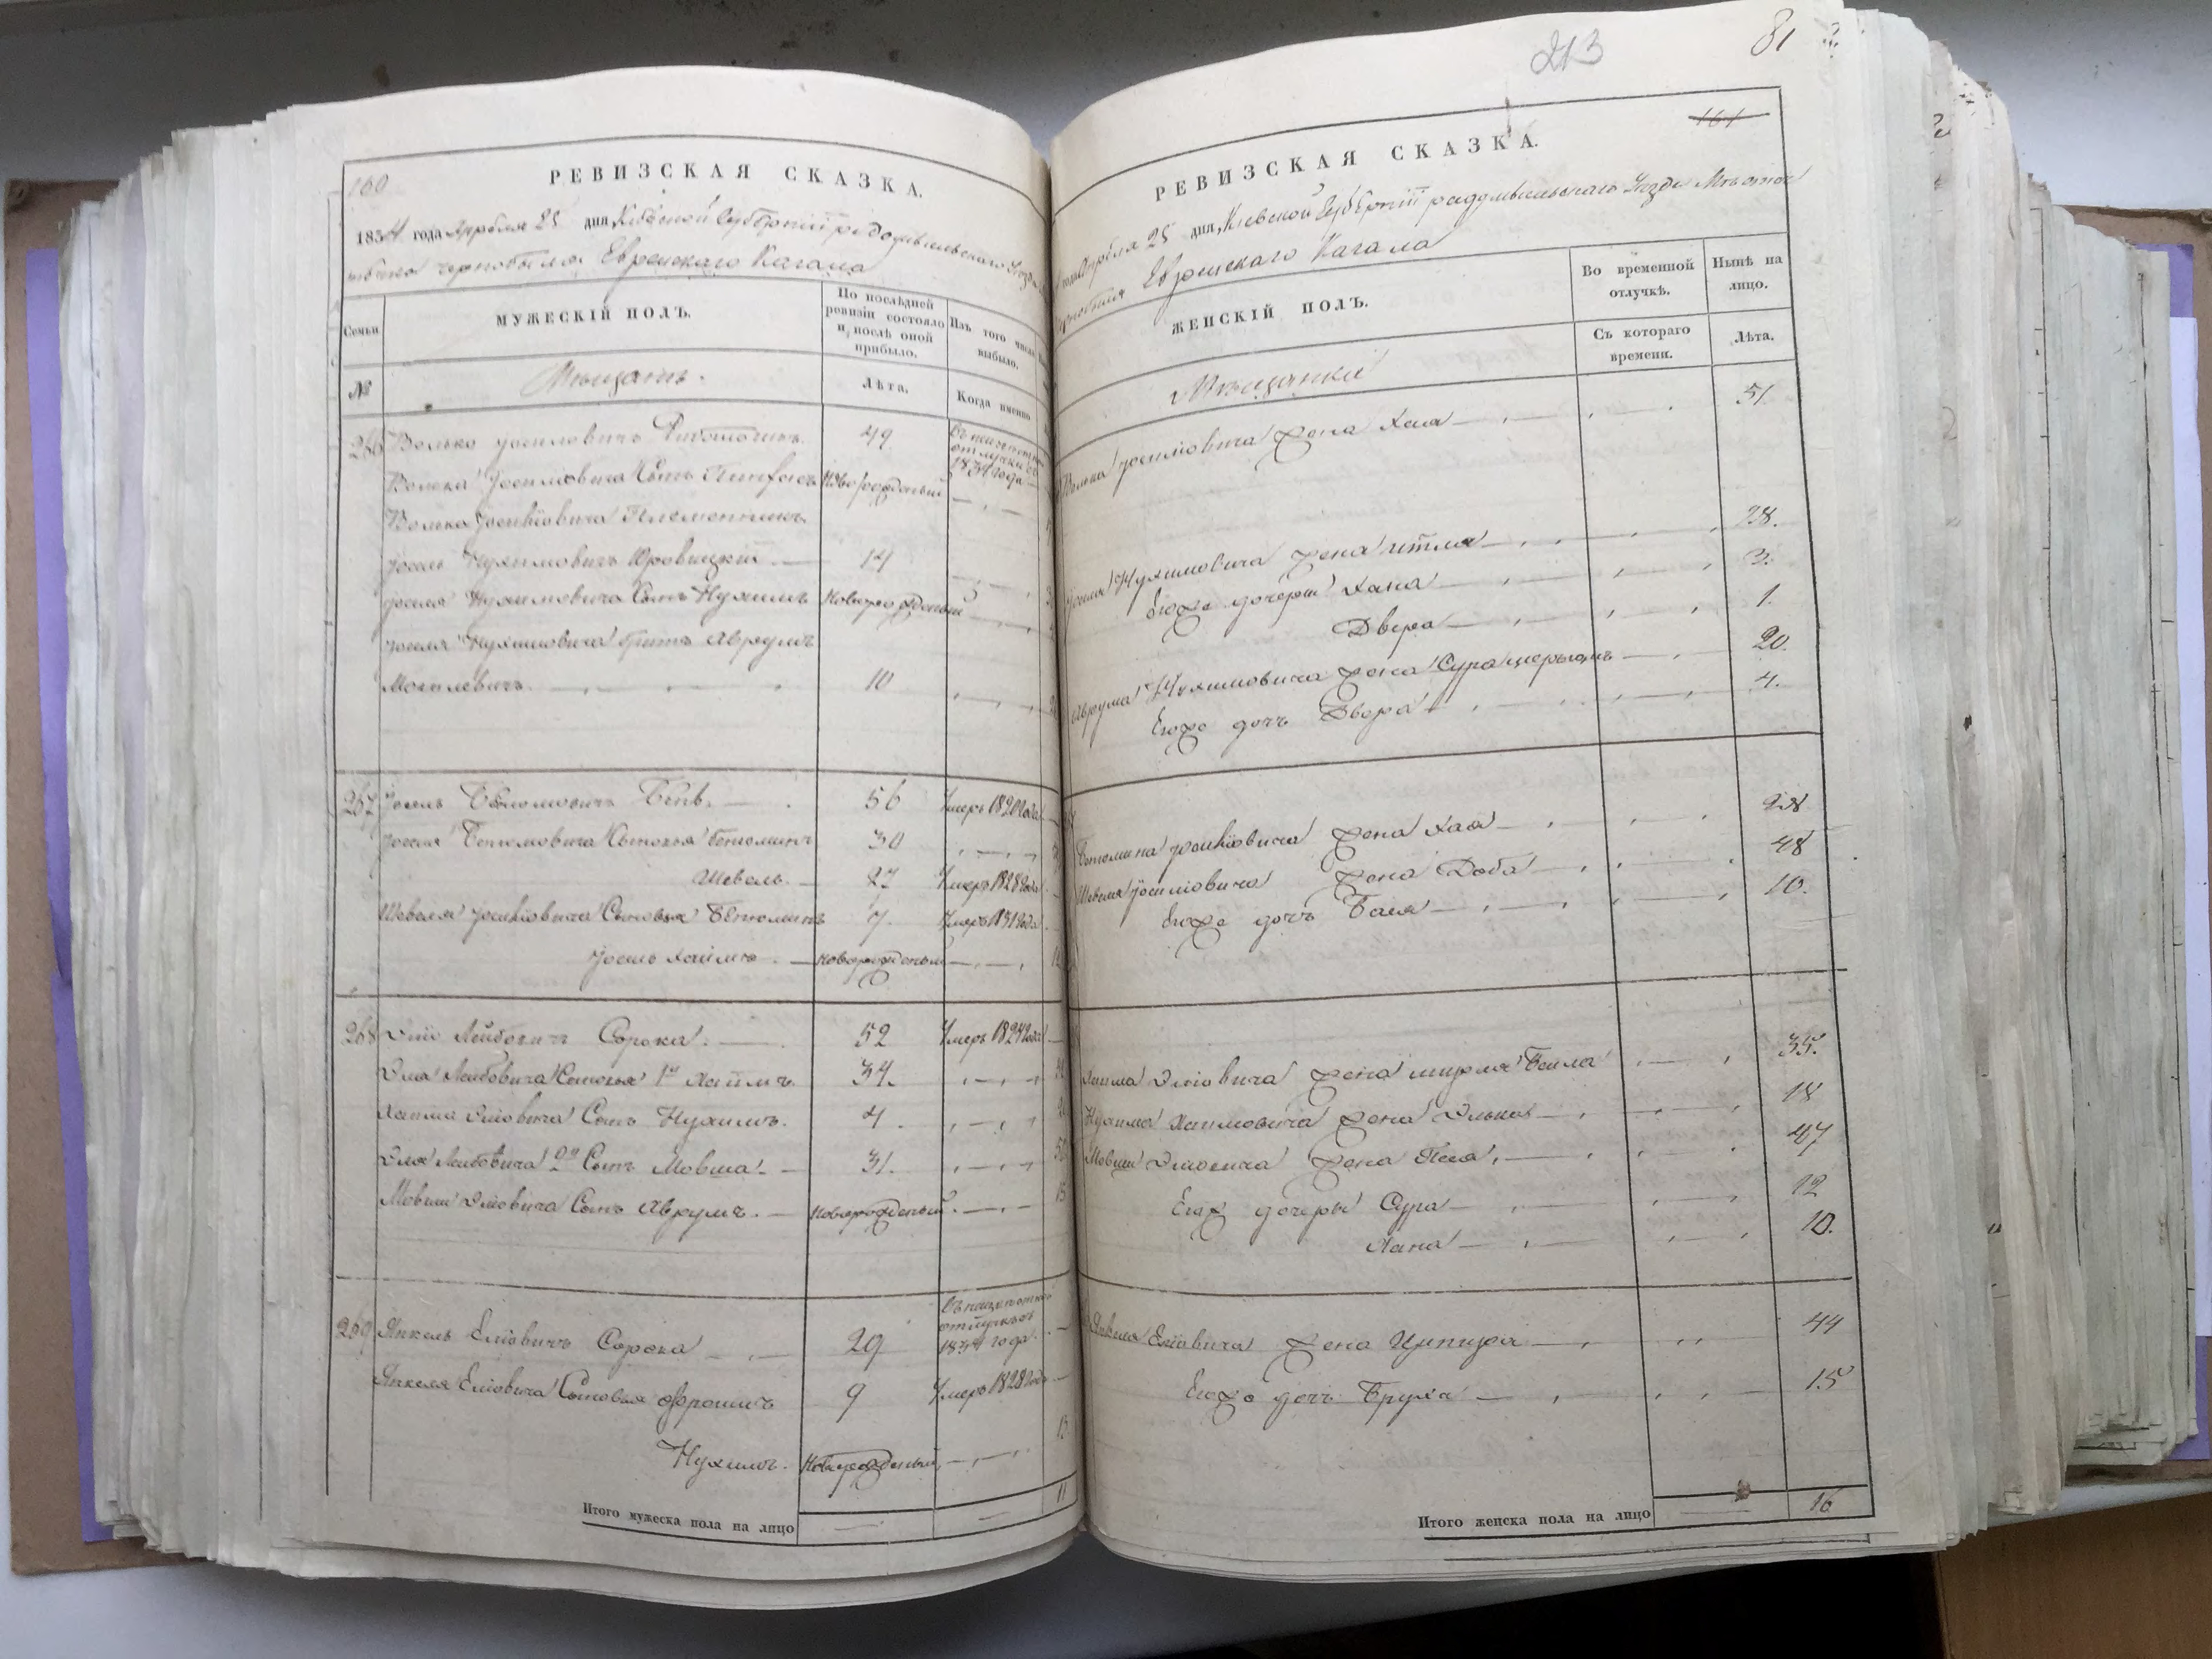 160
РЕВИЗСКАЯ СКАЗКА.
1834 года Апреля 25 дня, Киевской Губерніи радомысльскаго Уезда
местечка чернобыля Еврейскаго Кагала
Семьи
МУЖЕСКІЙ ПОЛЪ.
По послѣдней ревизіи состояло и, послѣ оной прибыло.
Изъ того числа выбыло.
№
Мещанъ.
Лѣта.
Когда именно
266 Волько Иосиовичъ 49 въ отлучки съ 1834 года
Волька Иосиовича Сынъ новорожденый
Волька Иосиовича Племенникъ
Иосель Нухимовичъ Юровицкій 14
Иоселя Нухимовича Сынъ Нухимъ новорожденый
Иоселя Нухимовича братъ Аврумъ
10
267 Иосель 56 Умеръ 1820 года
Иоселя Сыновья Бенюминъ 30
Шевель 27 Умеръ 1828 года
Шевеля Иосиовича Сыновья Бенюминъ 7 Умеръ 1831 года
Иосель Хаимъ новорожденый
268 Эліо Лейбовичъ Сорока 52 Умеръ 1824 года
Эля Лейбовича Сыновья 1й Хаимъ 34.
Хаима Эліовича Сынъ Нухимъ. 4
Эля Лейбовича 2й Сынъ Мовша 31.
Мовши Эліовича Сынъ Аврумъ. новорожденый
15
269 Янкель Еліовичъ Сорока 29 въ отлучке съ 1834 года
Янкеля Еліовича Сыновья Фроимъ 9 Умеръ 1828 года
Нухимъ. новорожденый
13
Итого мужеска пола на лицо
11
213
81
161
РЕВИЗСКАЯ СКАЗКА.
года Апреля 25 дня, Киевской Губерніи радомысльскаго Уезда Местечка
чернобыля Еврейскаго Кагала
ЖЕНСКІЙ ПОЛЪ.
Во временной отлучкѣ.
Нынѣ на лицо.
Съ котораго времени.
Лѣта.
Мещанки
Волька Иосиовича жена Хая 51
Иоселя Нухимовича жена Итля 28.
Егоже дочери Хана 3.
Двера 1.
Аврума Нухимовича жена Сура 20.
Егоже дочь Двера 4.
Бенюмина Иосиовича жена Хая 28
Шевеля Иосиовича жена Доба 48
Егоже дочь Бася 10.
Хаима Эліовича жена Бейла 35.
Нухима Хаимовича жена Элька 18
Мовши Эліовича жена Песя 47
Егож дочери Сура 12
Хана 10.
Янкеля Еліовича жена 44
Егоже дочь Бруха 15
Итого женска пола на лицо
16